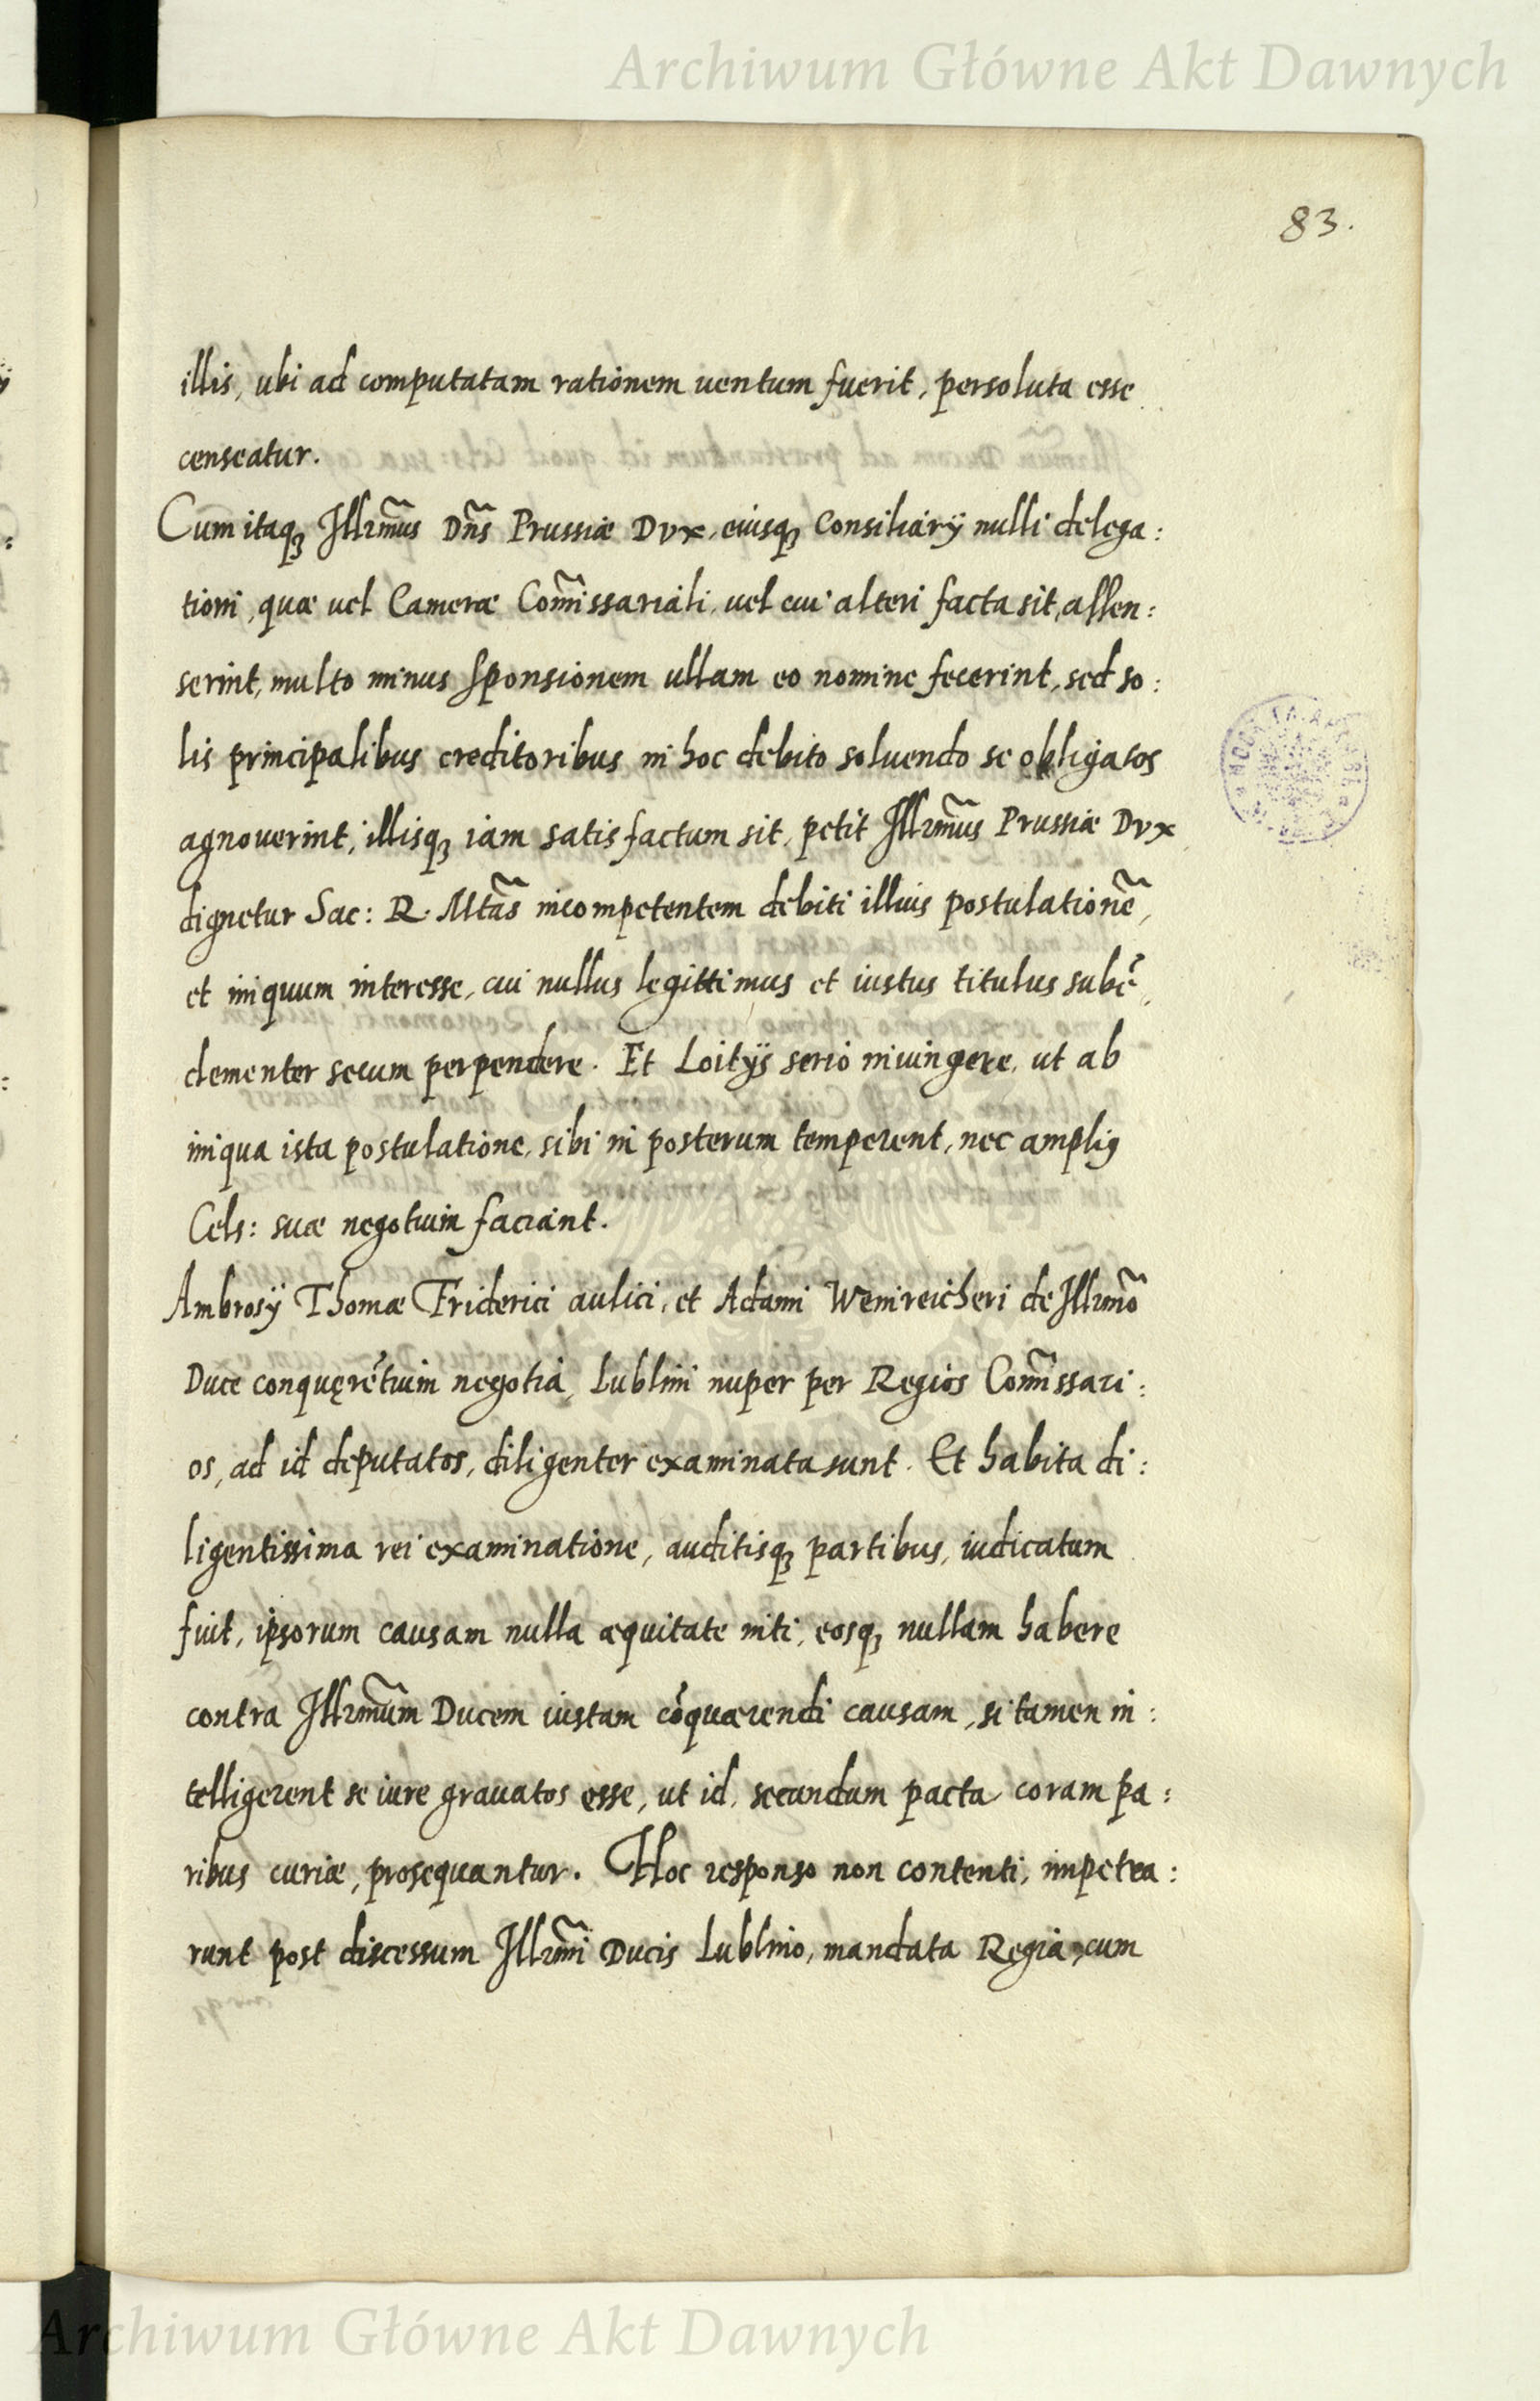 Archiwum Główne Akt Dawnych
83.
illis, ubi ad computatam rationem uentum fuerit, persoluta esse
censeatur.
Cum itaqꝫ Illr̃mus Dñs Prussiæ Dvx, eiusqꝫ Consiliarÿ nulli delega:
tioni, quæ uel Cameræ Com̃issariali, uel cui alteri facta sit, assen:
serint, multo minus sponsionem ullam eo nomine fecerint, sed so:
lis principalibus creditoribus in hoc debito soluendo se obligatos
agnouerint, illisqꝫ iam satisfactum sit, petit Illr̃mus Prussiæ Dvx
dignetur Sac: R. Mtãs incompetentem debiti illius postulationẽ,
et iniquum interesse, cui nullus legittimus et iustus titulus subẽ,
clementer secum perpendere. Et Loitÿs serio iniungere, ut ab
iniqua ista postulatione, sibi in posterum temperent, nec ampliꝰ
Cels: suæ negotium faciant.
Ambrosÿ Thomæ Friderici aulici, et Adami Wenireicheri de Illr̃mo
Duce conquęrẽtium negotia, Lublini nuper per Regios Com̃issari:
os, ad id deputatos, diligenter examinata sunt. Et habita di:
ligentissima rei examinatione, auditisqꝫ partibus, iudicatum
fuit, ipsorum causam nulla æquitate niti, eosqꝫ nullam habere
contra Illr̃mum Ducem iustam cõquærendi causam, si tamen in:
telligerent se iure grauatos esse, ut id, secundum pacta coram pa:
ribus curiæ, prosequantur. Hoc responso non contenti, impetra:
runt post discessum Illr̃mi Ducis Lublino, mandata Regia, cum
Archiwum Główne Akt Dawnych